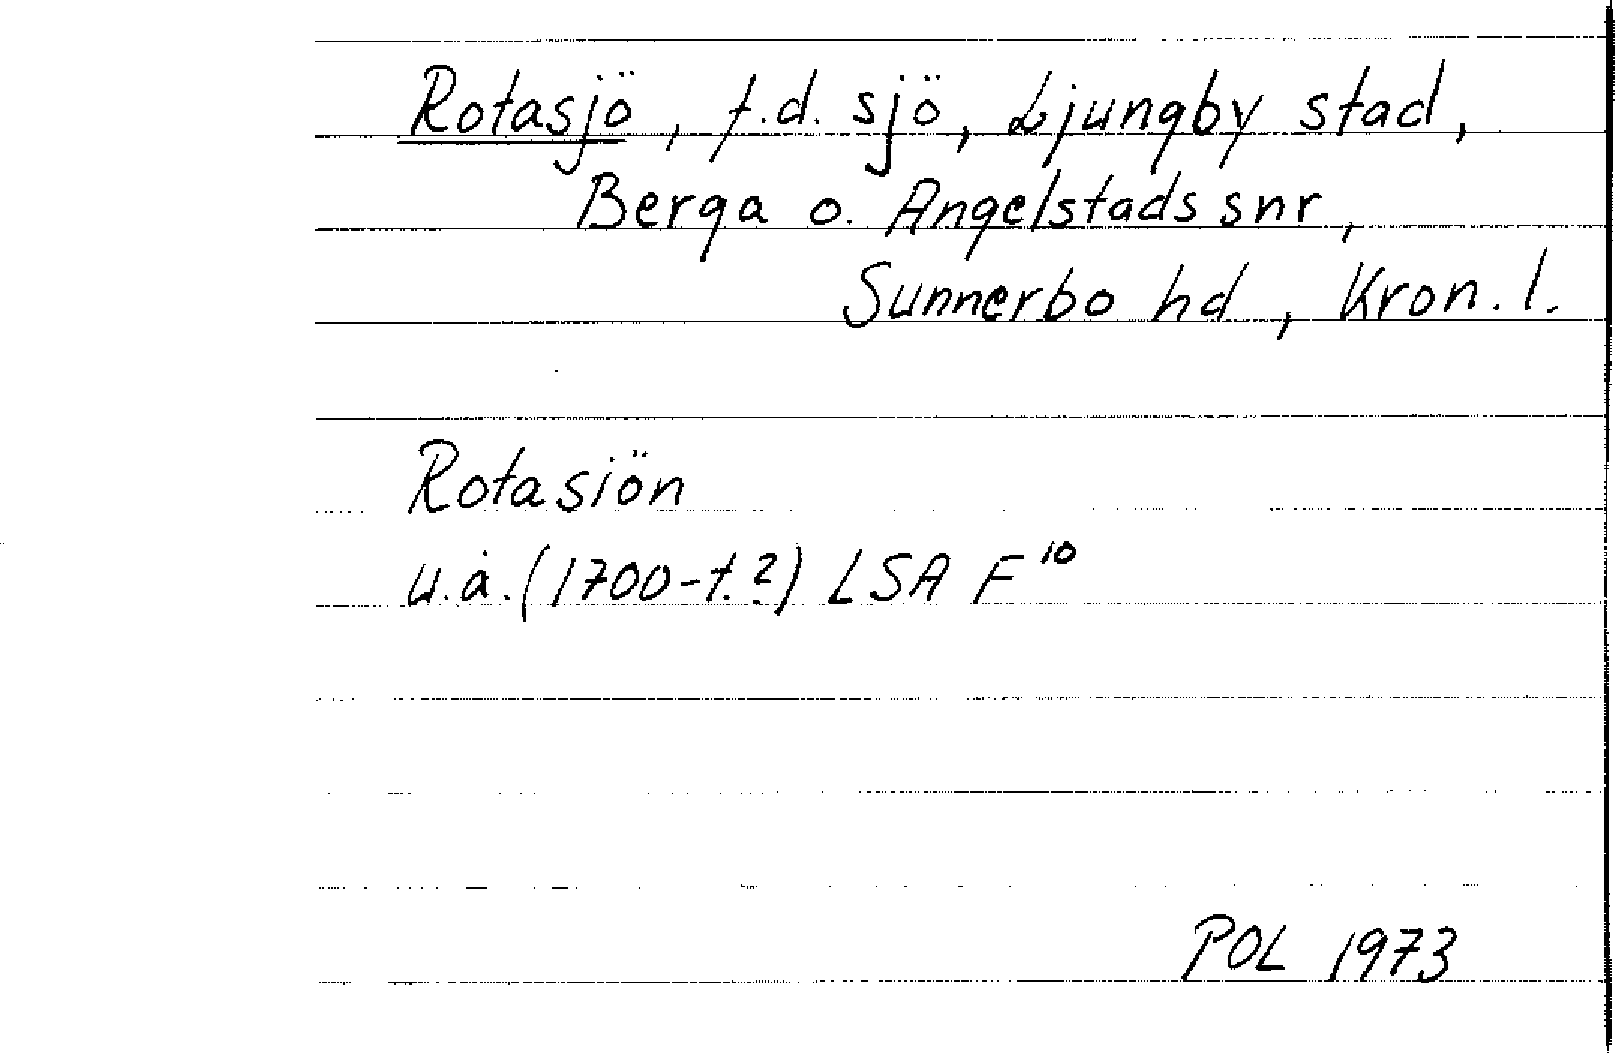 Rotasjö, f.d. sjö, Ljungby stad,
Berga o. Angelstads snr,
Sunnerbo hd, Kron. l.
Rotasiön
u.å. (1700-t.?) LSA F¹⁰
POL 1973